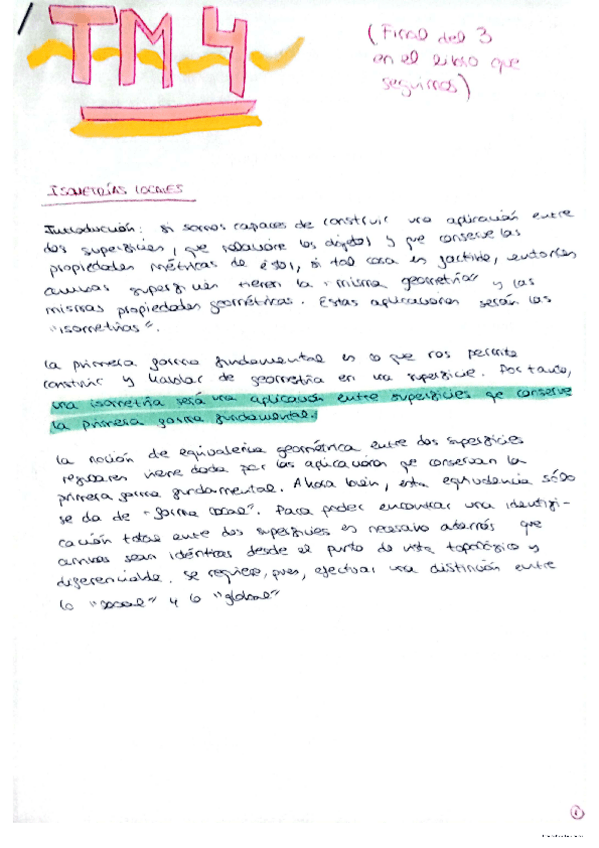 TM4
(Final del 3
en el libro que
seguimos)
ISOMETRÍAS LOCALES
Introducción: si somos capaces de construir una aplicación entre
dos superficies, que relacione los objetos y que conserve las
propiedades métricas de éstos, si tal cosa es factible, entonces
ambas superficies tienen la "misma geometría" y las
mismas propiedades geométricas. Estas aplicaciones serán las
"isometrías".
La primera forma fundamental es lo que nos permite
construir y hablar de geometría en una superficie. Por tanto,
una isometría será una aplicación entre superficies que conserve
la primera forma fundamental.
La noción de equivalencia geométrica entre dos superficies
regulares viene dada por las aplicaciones que conservan la
primera forma fundamental. Ahora bien, esta equivalencia sólo
se da de "forma local". Para poder encontrar una identifi-
cación total entre dos superficies es necesario además que
ambas sean idénticas desde el punto de vista topológico y
diferenciable. Se requiere, pues, efectuar una distinción entre
lo "local" y lo "global"
1